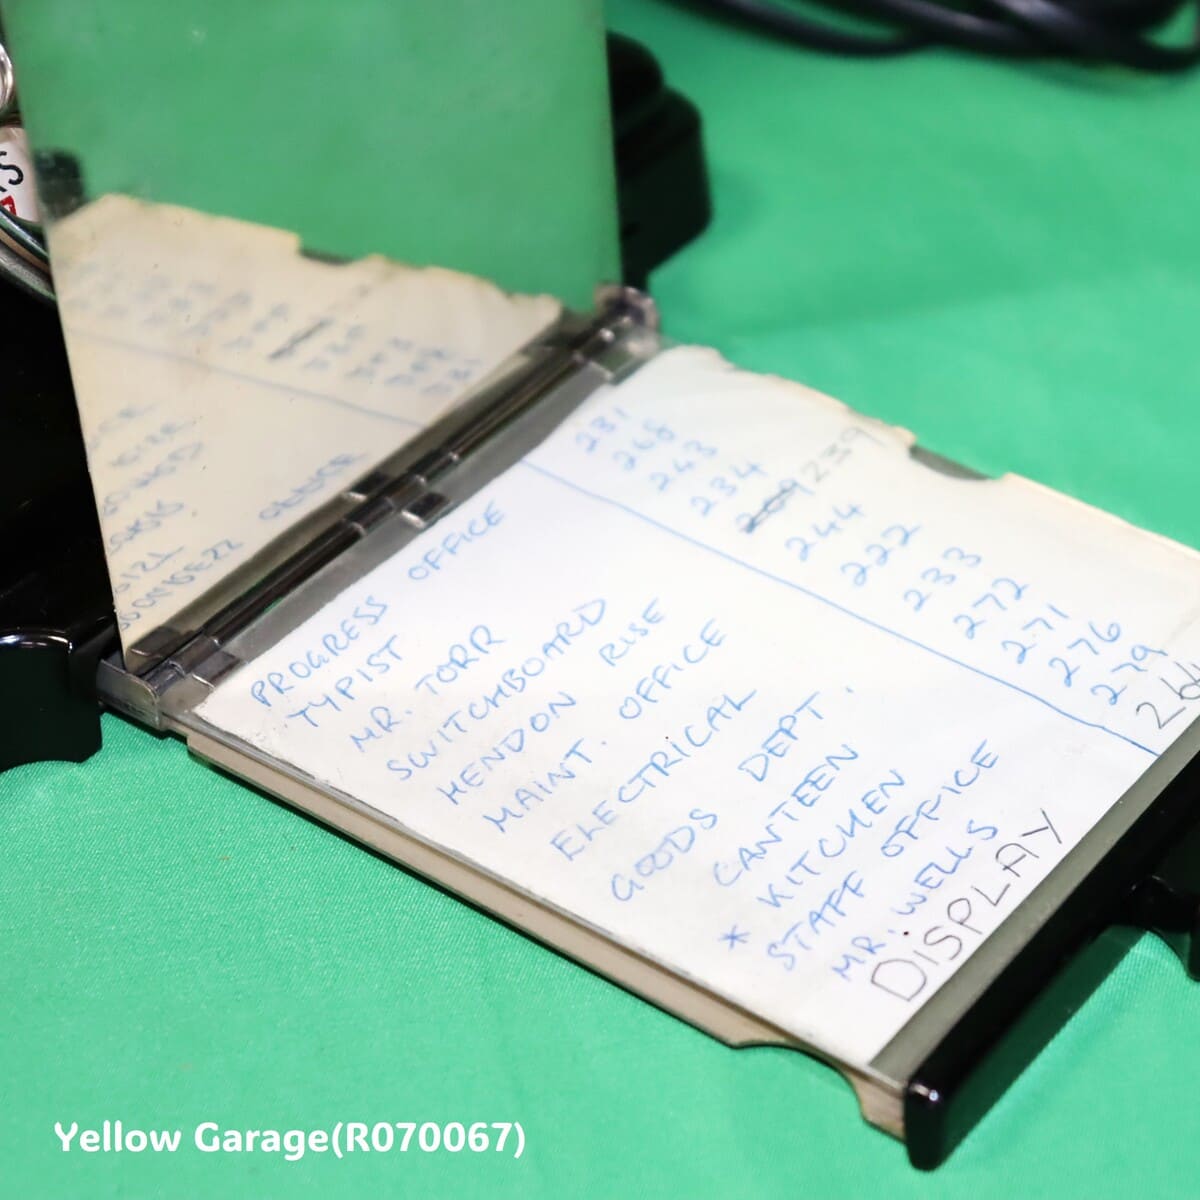 PROGRESS OFFICE 231
TYPIST 268
MR. TORR 243
SWITCHBOARD 234
HENDON RISE 239
MAINT. OFFICE 244
ELECTRICAL 222
GOODS DEPT. 233
CANTEEN 272
* KITCHEN 271
STAFF OFFICE 276
MR. WELLS 279
DISPLAY
Yellow Garage(R070067)